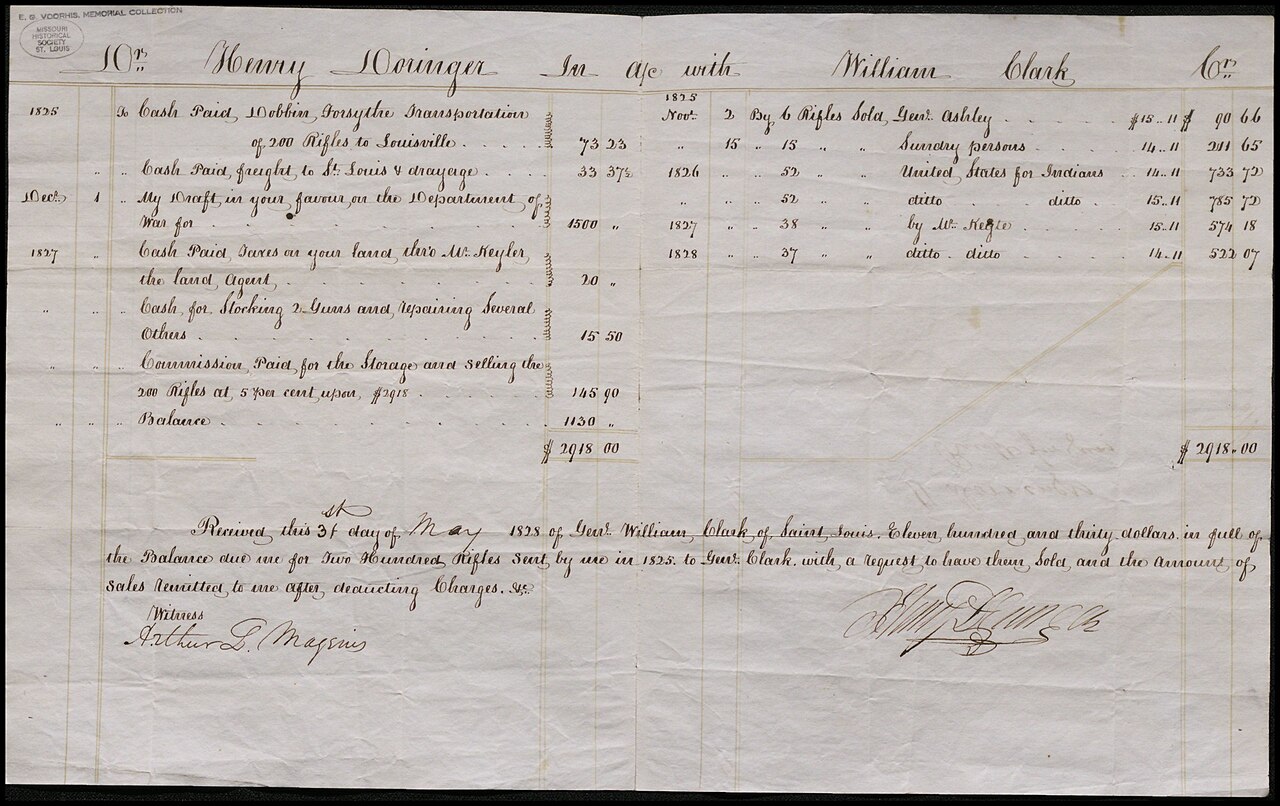 E. G. VOORHIS. MEMORIAL COLLECTION
MISSOURI
HISTORICAL
SOCIETY
ST. LOUIS
Dr. Henry Doringer In a/c with William Clark Cr.
1825 To Cash Paid, Dobbin, Forsythe Transportation
of 200 Rifles to Louisville 73 23
" " Cash Paid, freight to St. Louis & drayage 33 37½
Decr. 1 " My Draft in your favour on the Department of
War for 1500 "
1827 " Cash Paid, Taxes on your land, thro Mr. Keyler,
the land Agent, 20 "
" " Cash, for Stocking 2 Guns and repairing Several
Others 15 50
" " Commission Paid, for the Storage and selling the
200 Rifles at 5 per cent upon, $2918 145 90
" " " Balance 1130 "
$ 2918 00
1825
Novr. 2 By 6 Rifles Sold, Genl. Ashley $15..11 $ 90 66
" 15 " 15 " " Sundry persons 14..11 211 65
1826 " " 52 " " United States for Indians 14..11 733 72
" " " 52 " " ditto ditto 15..11 785 72
1827 " " 38 " " by Mr. 15..11 574 18
1828 " " 37 " " ditto ditto 14..11 522 07
$ 2918.00
Received this 31st day of May 1828 of Genl. William Clark of Saint Louis. Eleven hundred and thirty dollars. in full of
the Balance due me for Two Hundred Rifles Sent by me in 1825. to Genl. Clark. with a request to have them Sold, and the Amount of
Sales remitted to me after deducting Charges. &c.
Witness
Arthur L. Magenis